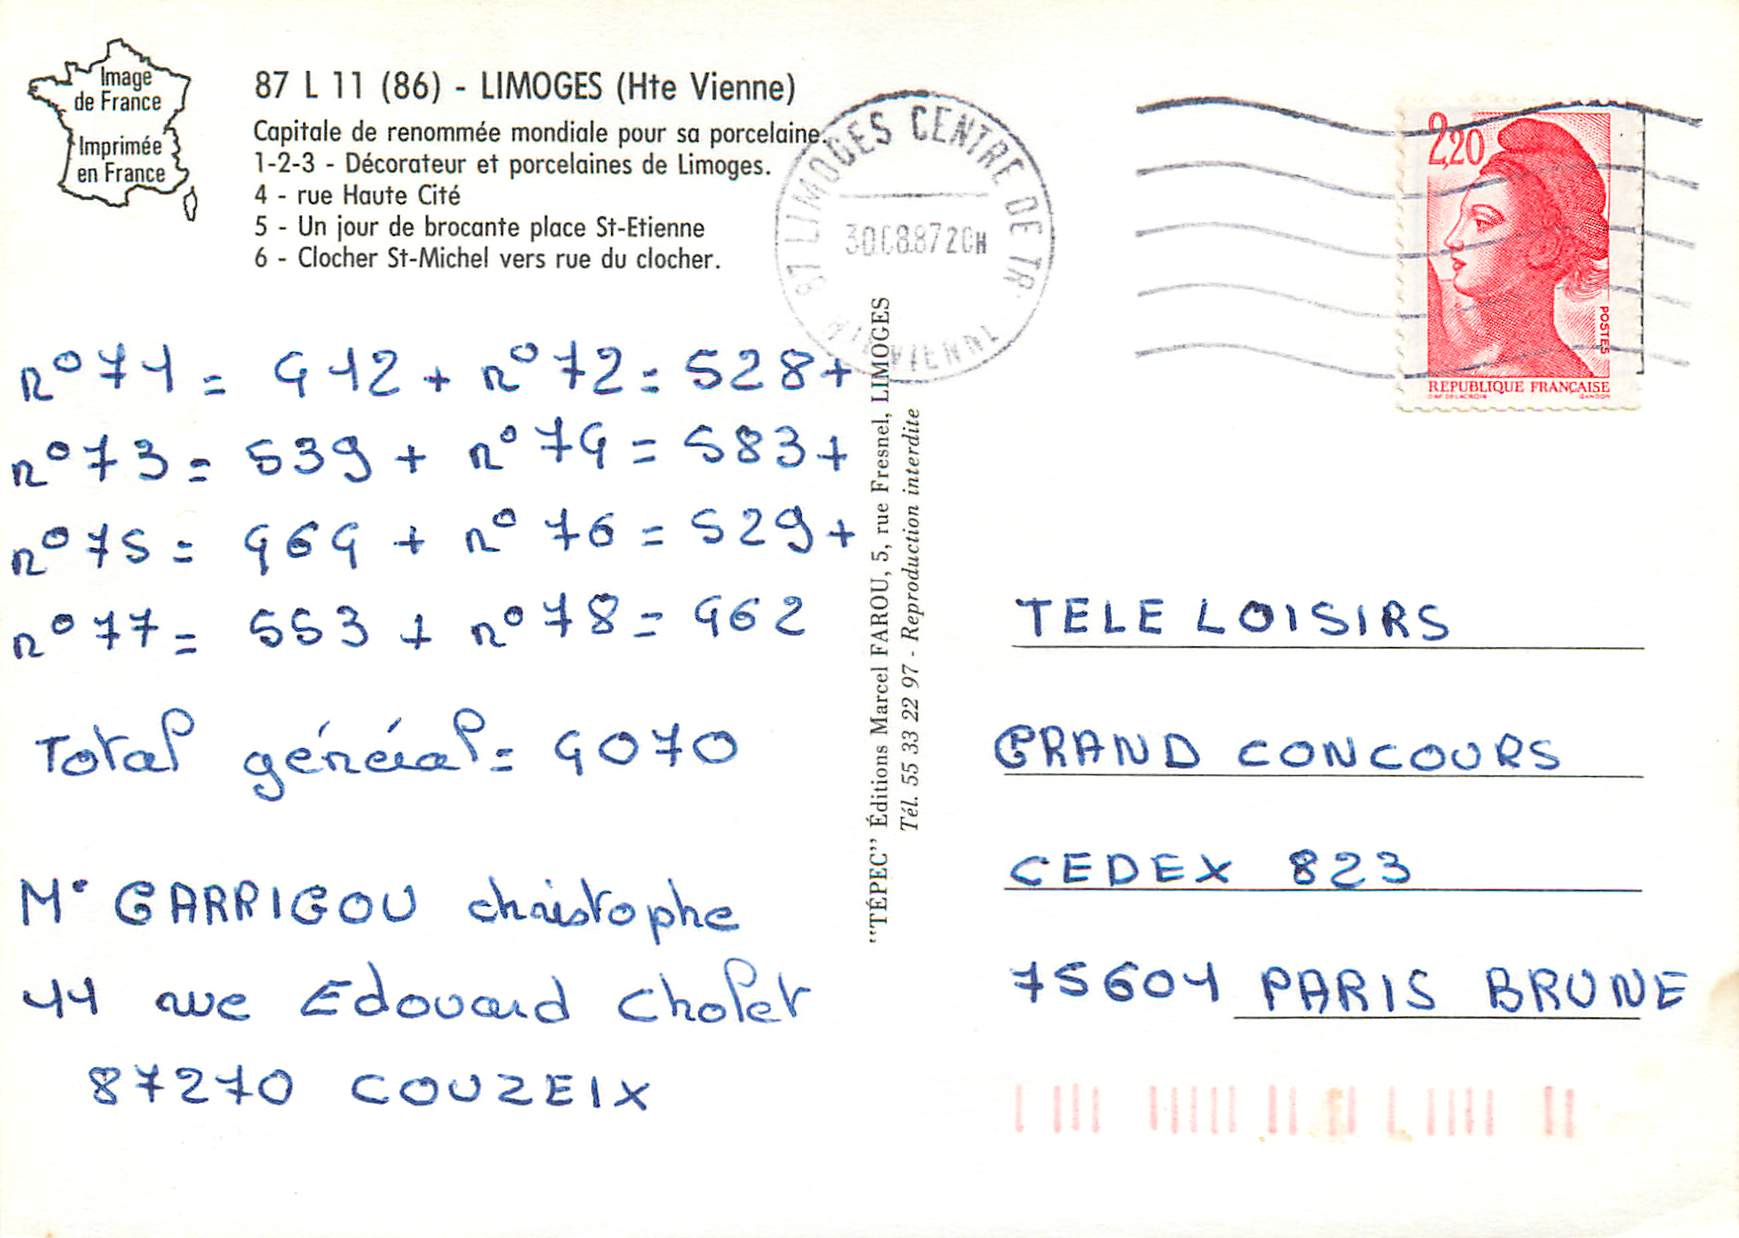 Image
de France
Imprimée
en France
87 L 11 (86) - LIMOGES (Hte Vienne)
Capitale de renommée mondiale pour sa porcelaine.
1-2-3 - Décorateur et porcelaines de Limoges.
4 - rue Haute Cité
5 - Un jour de brocante place St-Etienne
6 - Clocher St-Michel vers rue du clocher.
87 LIMOGES CENTRE DE TR.
30.08.87 20H
HTE VIENNE
2,20
POSTES
REPUBLIQUE FRANÇAISE
D'AP. DELACROIX GANDON
n° 71 = 412 + n° 72 = 528 +
n° 73 = 539 + n° 74 = 583 +
n° 75 = 464 + n° 76 = 529 +
n° 77 = 553 + n° 78 = 462
Total général = 4070
Mr GARRIGOU christophe
11 rue Edouard Cholet
87270 COUZEIX
"TÉPEC" Éditions Marcel FAROU, 5, rue Fresnel, LIMOGES
Tél. 55 33 22 97 - Reproduction interdite
TELE LOISIRS
GRAND CONCOURS
CEDEX 823
75601 PARIS BRUNE